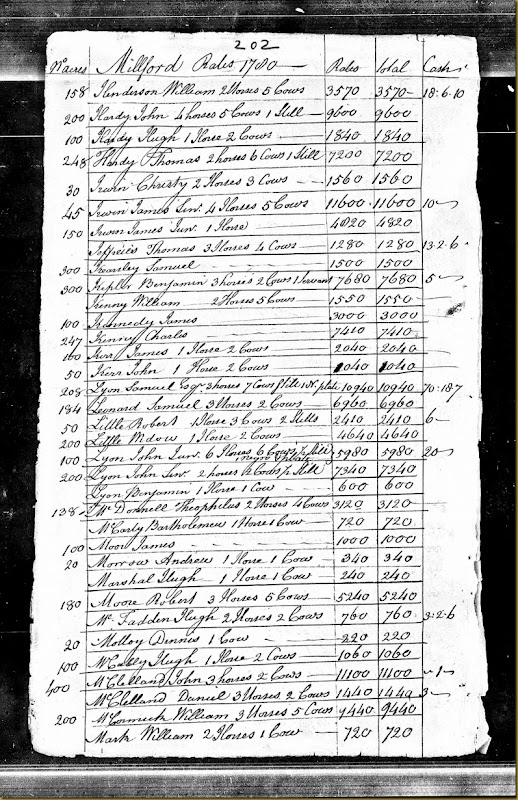 202
No acres Millford Rates 1780 Rates total Cash
158 Henderson William 2 Horses 5 Cows 3570 3570 18:6:10
200 Hardy John 4 horses 5 Cows 1 Still 9600 9600
100 Hardy Hugh 1 Horse 2 Cows 1840 1840
248 Hardy Thomas 2 horses 6 Cows 1 Still 7200 7200
30 Irwin Christy 2 Horses 3 Cows 1560 1560
45 Irwin James Senr. 4 Horses 5 Cows 11600 11600 10
150 Irwin James Junr. 1 Horse 4820 4820
Jeffries Thomas 3 Horses 4 Cows 1280 1280 13:2:6
300 Kearsley Samuel 1500 1500
300 Kepler Benjamin 3 horses 2 Cows 1 Servant 7680 7680 5
Kenny William 2 Horses 5 Cows 1550 1550
100 Kennedy James 3000 3000
247 Kenny Charles 7410 7410
100 Kerr James 1 Horse 2 Cows 2040 2040
50 Kerr John 1 Horse 2 Cows 1040 1040
208 Lyon Samuel Esqr. 3 horses 7 Cows 10940 10940 70:18:7
184 Leonard Samuel 3 Horses 2 Cows 6960 6960
50 Little Robert 1 Horse 3 Cows 2 Stills 2410 2410 6
200 Little Widow 1 Horse 2 Cows 4640 4640
100 Lyon John Junr. 6 Horses 6 Cows 1/2 Still 5980 5980 20
200 Lyon John Senr. 2 horses 2 Cows 1/2 Still 7340 7340
Lyon Benjamin 1 Horse 1 Cow 600 600
138 Mc. Donnell Theophilus 2 Horses 4 Cows 3120 3120
McCarty Bartholemew 1 Horse 1 Cow 720 720
100 Moor James 1000 1000
20 Morrow Andrew 1 Horse 1 Cow 340 340
Marshal Hugh 1 Horse 1 Cow 240 240
180 Moore Robert 3 Horses 5 Cows 5240 5240
Mc. Fadden Hugh 2 Horses 2 Cows 760 760 3:2:6
20 Molloy Dennis 1 Cow 220 220
100 Hugh 1 Horse 2 Cows 1060 1060
400 McClelland John 3 horses 2 Cows 11100 11100 1
McClelland Daniel 3 Horses 2 Cows 1440 1440 3
200 McCormick William 3 Horses 5 Cows 9440 9440
Mark William 2 Horses 1 Cow 720 720